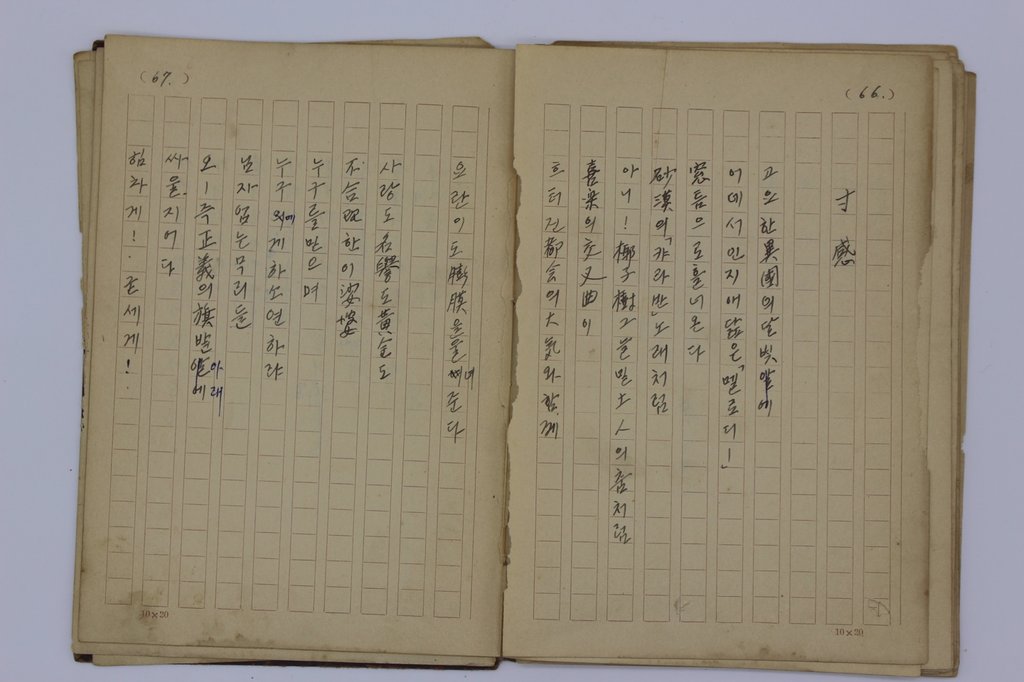 (66.)
寸感
고요한 異國의 달빛 알에
어데서인지 애닯은「멜로디ㅡ」
窓틈으로 흘너온다
砂漠의「캬라반」노래처럼
아니! 椰子樹 그늘 밑 土人의 춤처럼
喜樂의 交叉曲이
흐터진 都会의 大気와 함께
10×20
(67.)
요란이도 膨膜을 울녀준다
사랑도 名譽도 黃金도
不合理한 이 娑婆
누구를 믿으며
누구에게 하소연하랴
남자 없는 무리들
오ㅡ 즉 正義의 旗발 아래
싸울지어다
힘차게! 굳세게!
10×20